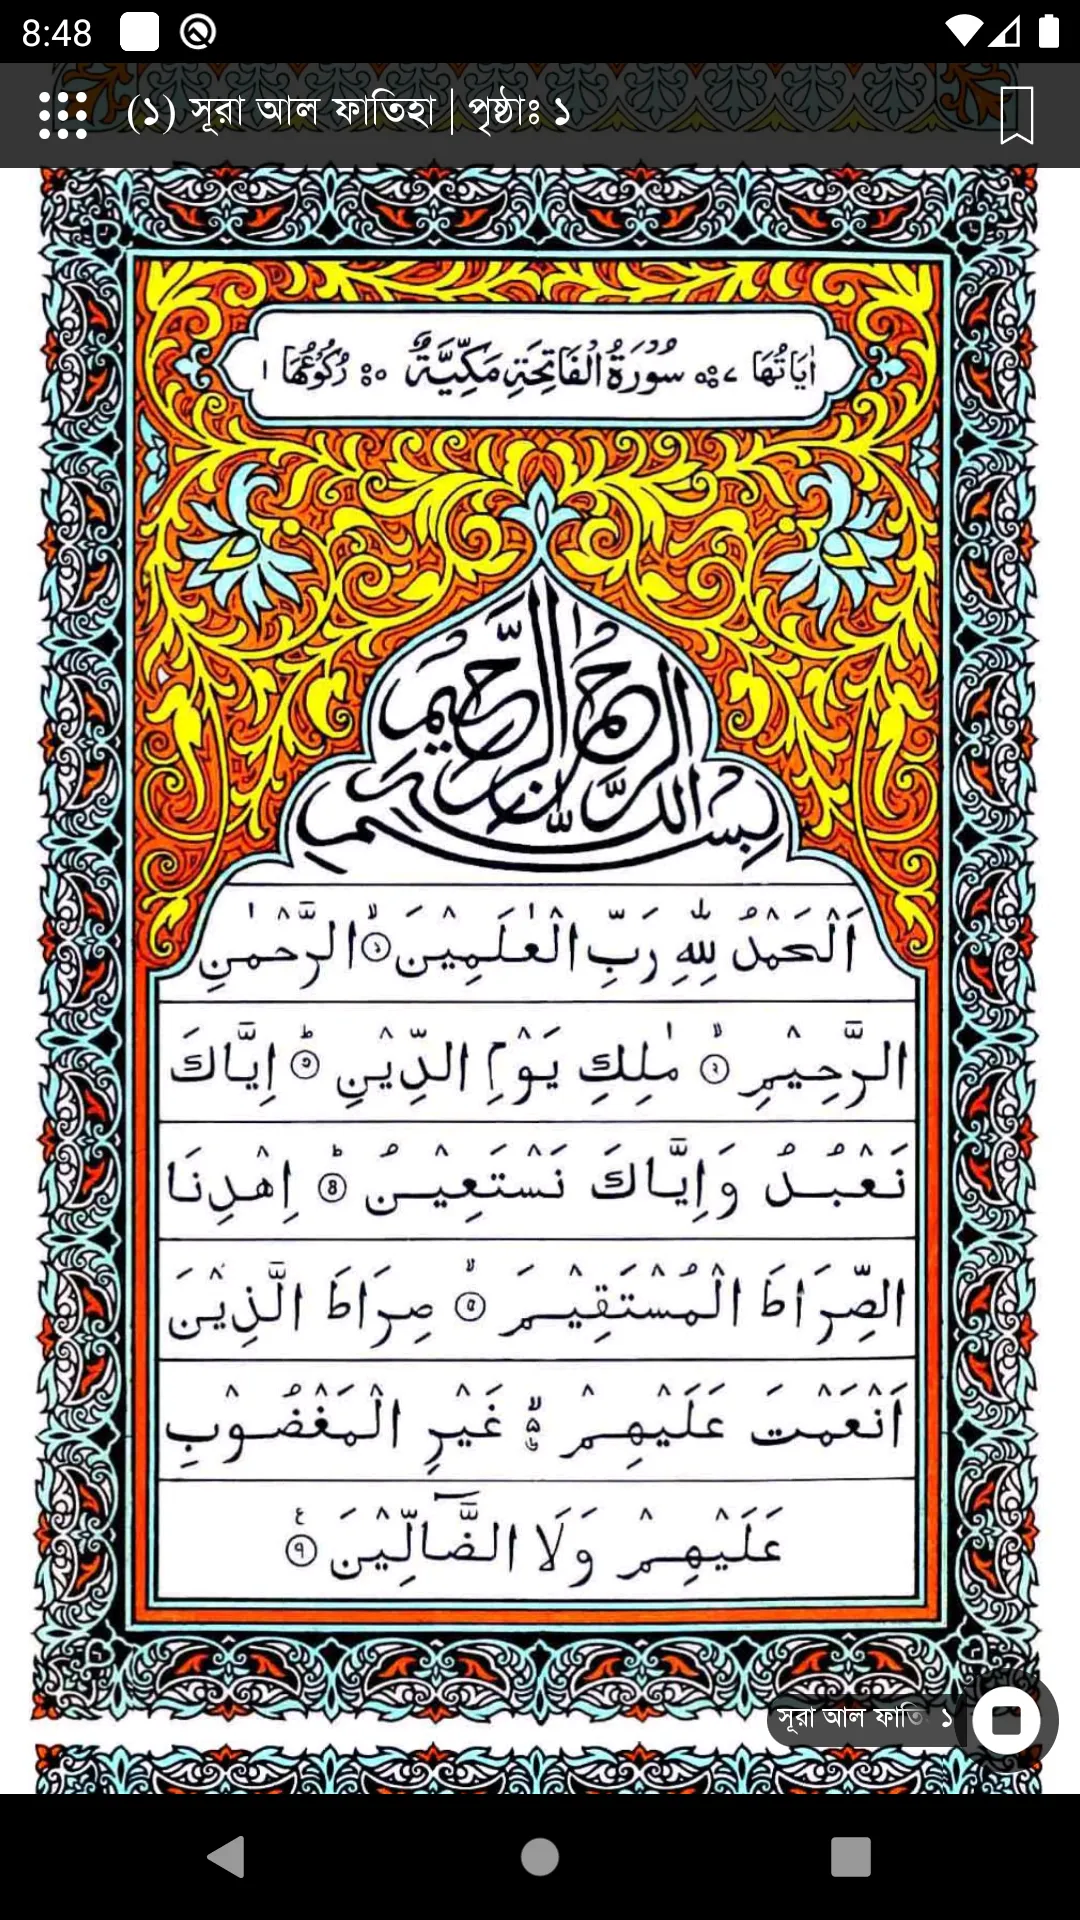 8:48
(১) সূরা আল ফাতিহা | পৃষ্ঠাঃ ১
اٰیَاتُهَا ٧ سُوْرَةُ الْفَاتِحَةِ مَكِّیَّةٌ رُكُوْعُهَا ١
بِسْمِ اللّٰهِ الرَّحْمٰنِ الرَّحِیْمِ
اَلْحَمْدُ لِلّٰهِ رَبِّ الْعٰلَمِیْنَۙ ۝١ الرَّحْمٰنِ
الرَّحِیْمِۙ ۝٢ مٰلِكِ یَوْمِ الدِّیْنِؕ ۝٣ اِیَّاكَ
نَعْبُدُ وَاِیَّاكَ نَسْتَعِیْنُؕ ۝٤ اِهْدِنَا
الصِّرَاطَ الْمُسْتَقِیْمَۙ ۝٥ صِرَاطَ الَّذِیْنَ
اَنْعَمْتَ عَلَیْهِمْ ۙ۬ۦ غَیْرِ الْمَغْضُوْبِ
عَلَیْهِمْ وَلَا الضَّآلِّیْنَ ۝٧
সূরা আল ফাতি ১